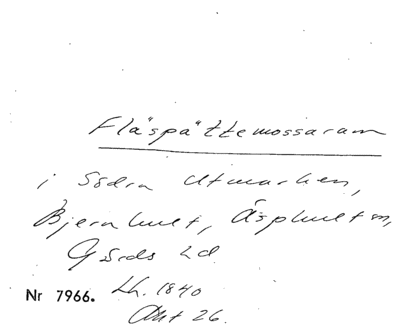 Fläspättemossaram
i Södra Utmarken,
Bjernhult, Äsphult sn,
Gärds hd
Nr 7966. Lh. 1840
Akt 26.